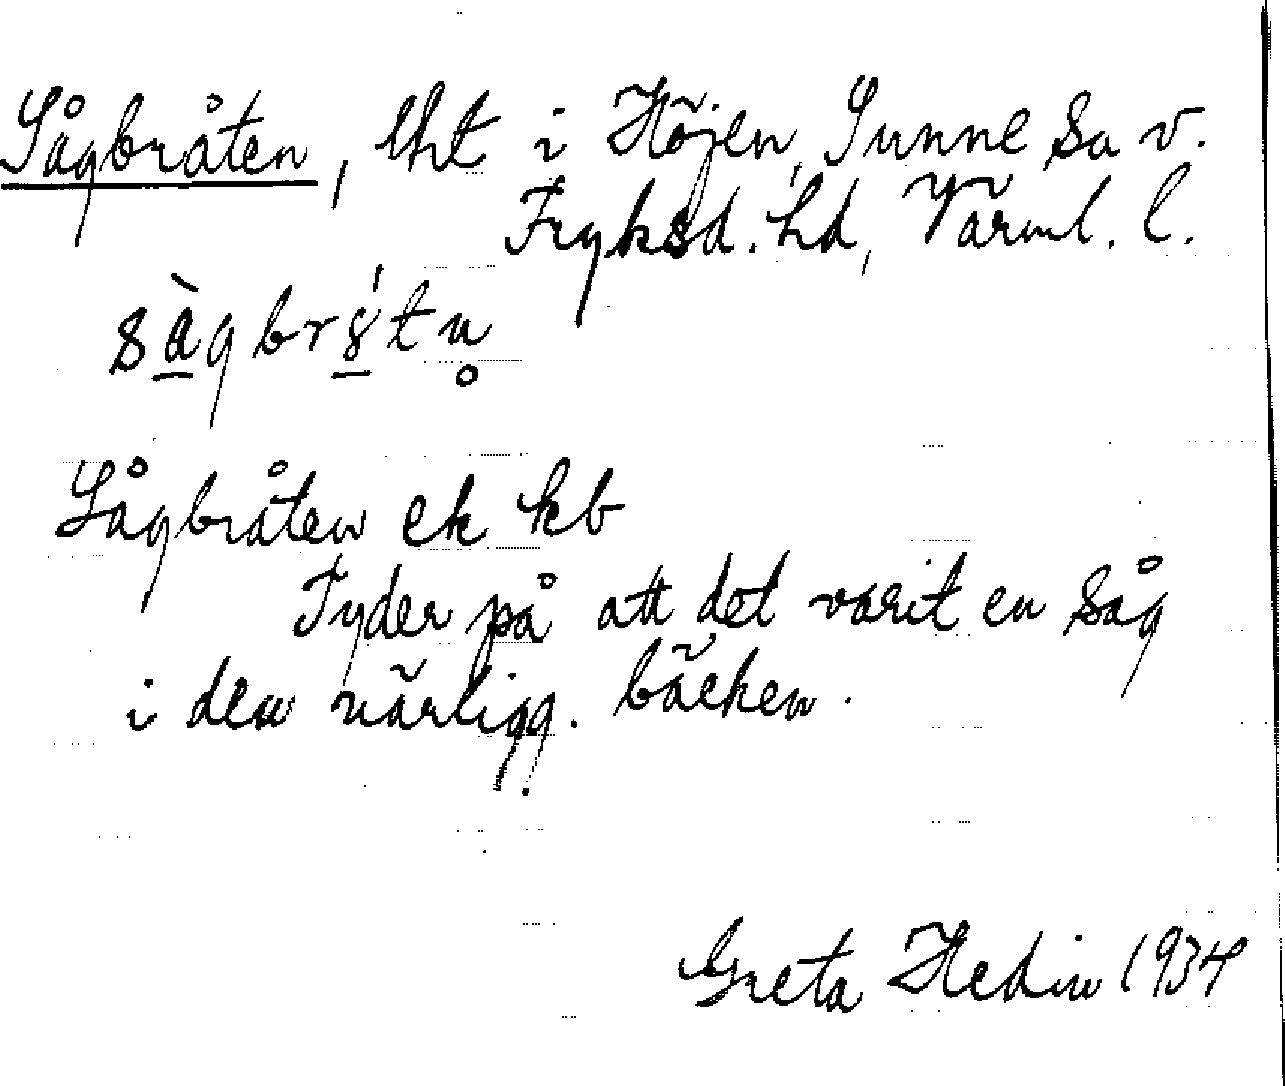 Sågbråten, lht i Höjen, Sunne sn v.
Fryksd. hd, Värml. l.
Sågbråten ek kb
Tyder på att det varit en såg
i den närligg. bäcken.
Greta Hedin 1934